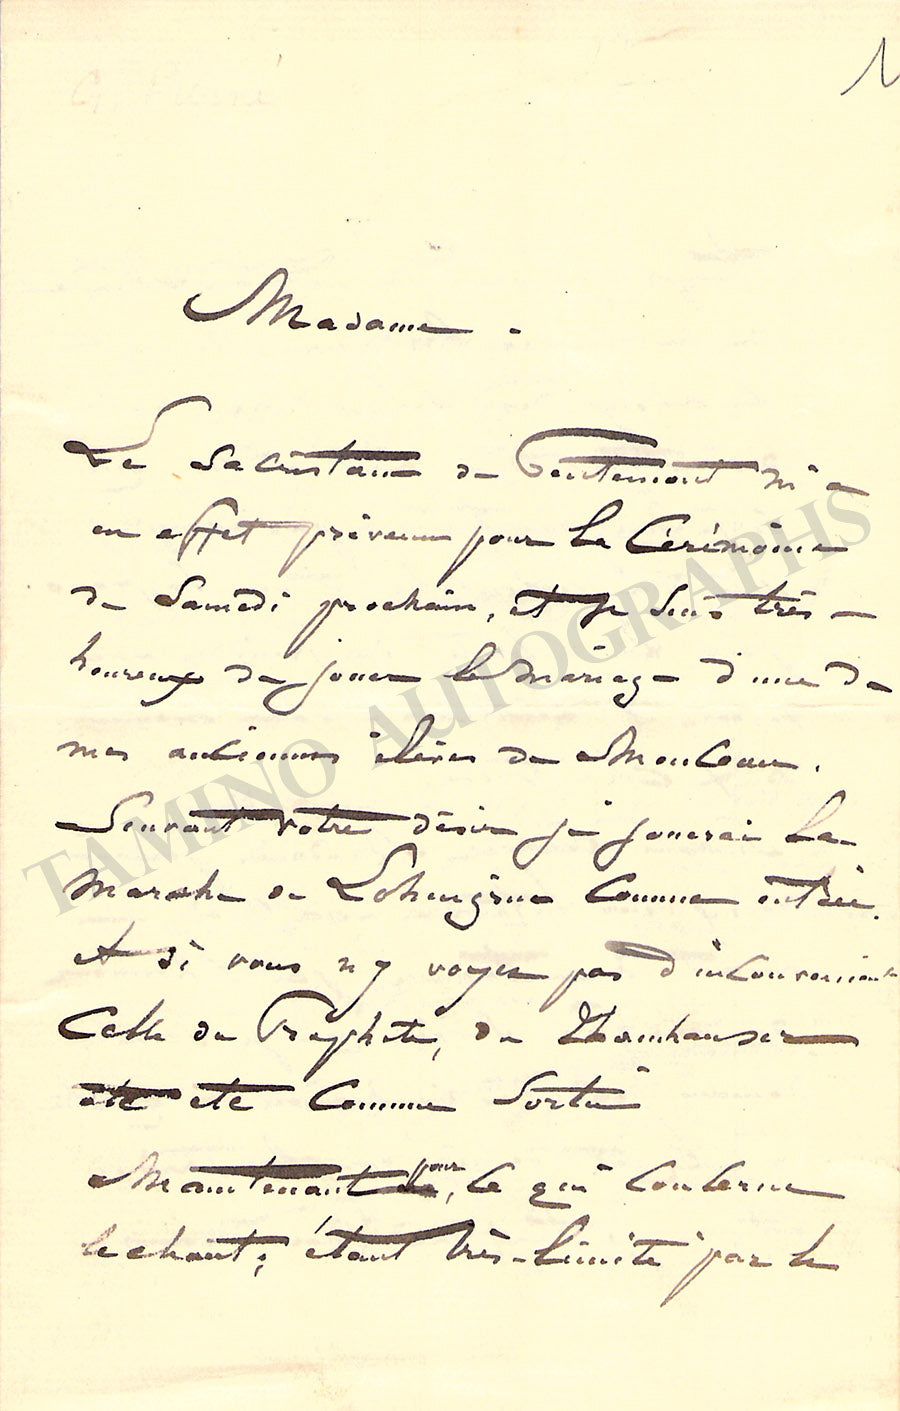 Madame.
Le Sacristain de Pentemont m'a
en effet prévenu pour la Cérémonie
de Samedi prochain, et je suis très
heureux de jouer le mariage d'une de
mes anciennes élèves de Monceau.
Suivant votre désir je jouerai la
marche de Lohengrin comme entrée.
et si vous n'y voyez pas d'inconvenient
Celle du Prophète, de Thannhauser
etc etc comme Sortie
Maintenant pour, ce qui concerne
le chant; étant très-limité par le
TAMINO AUTOGRAPHS